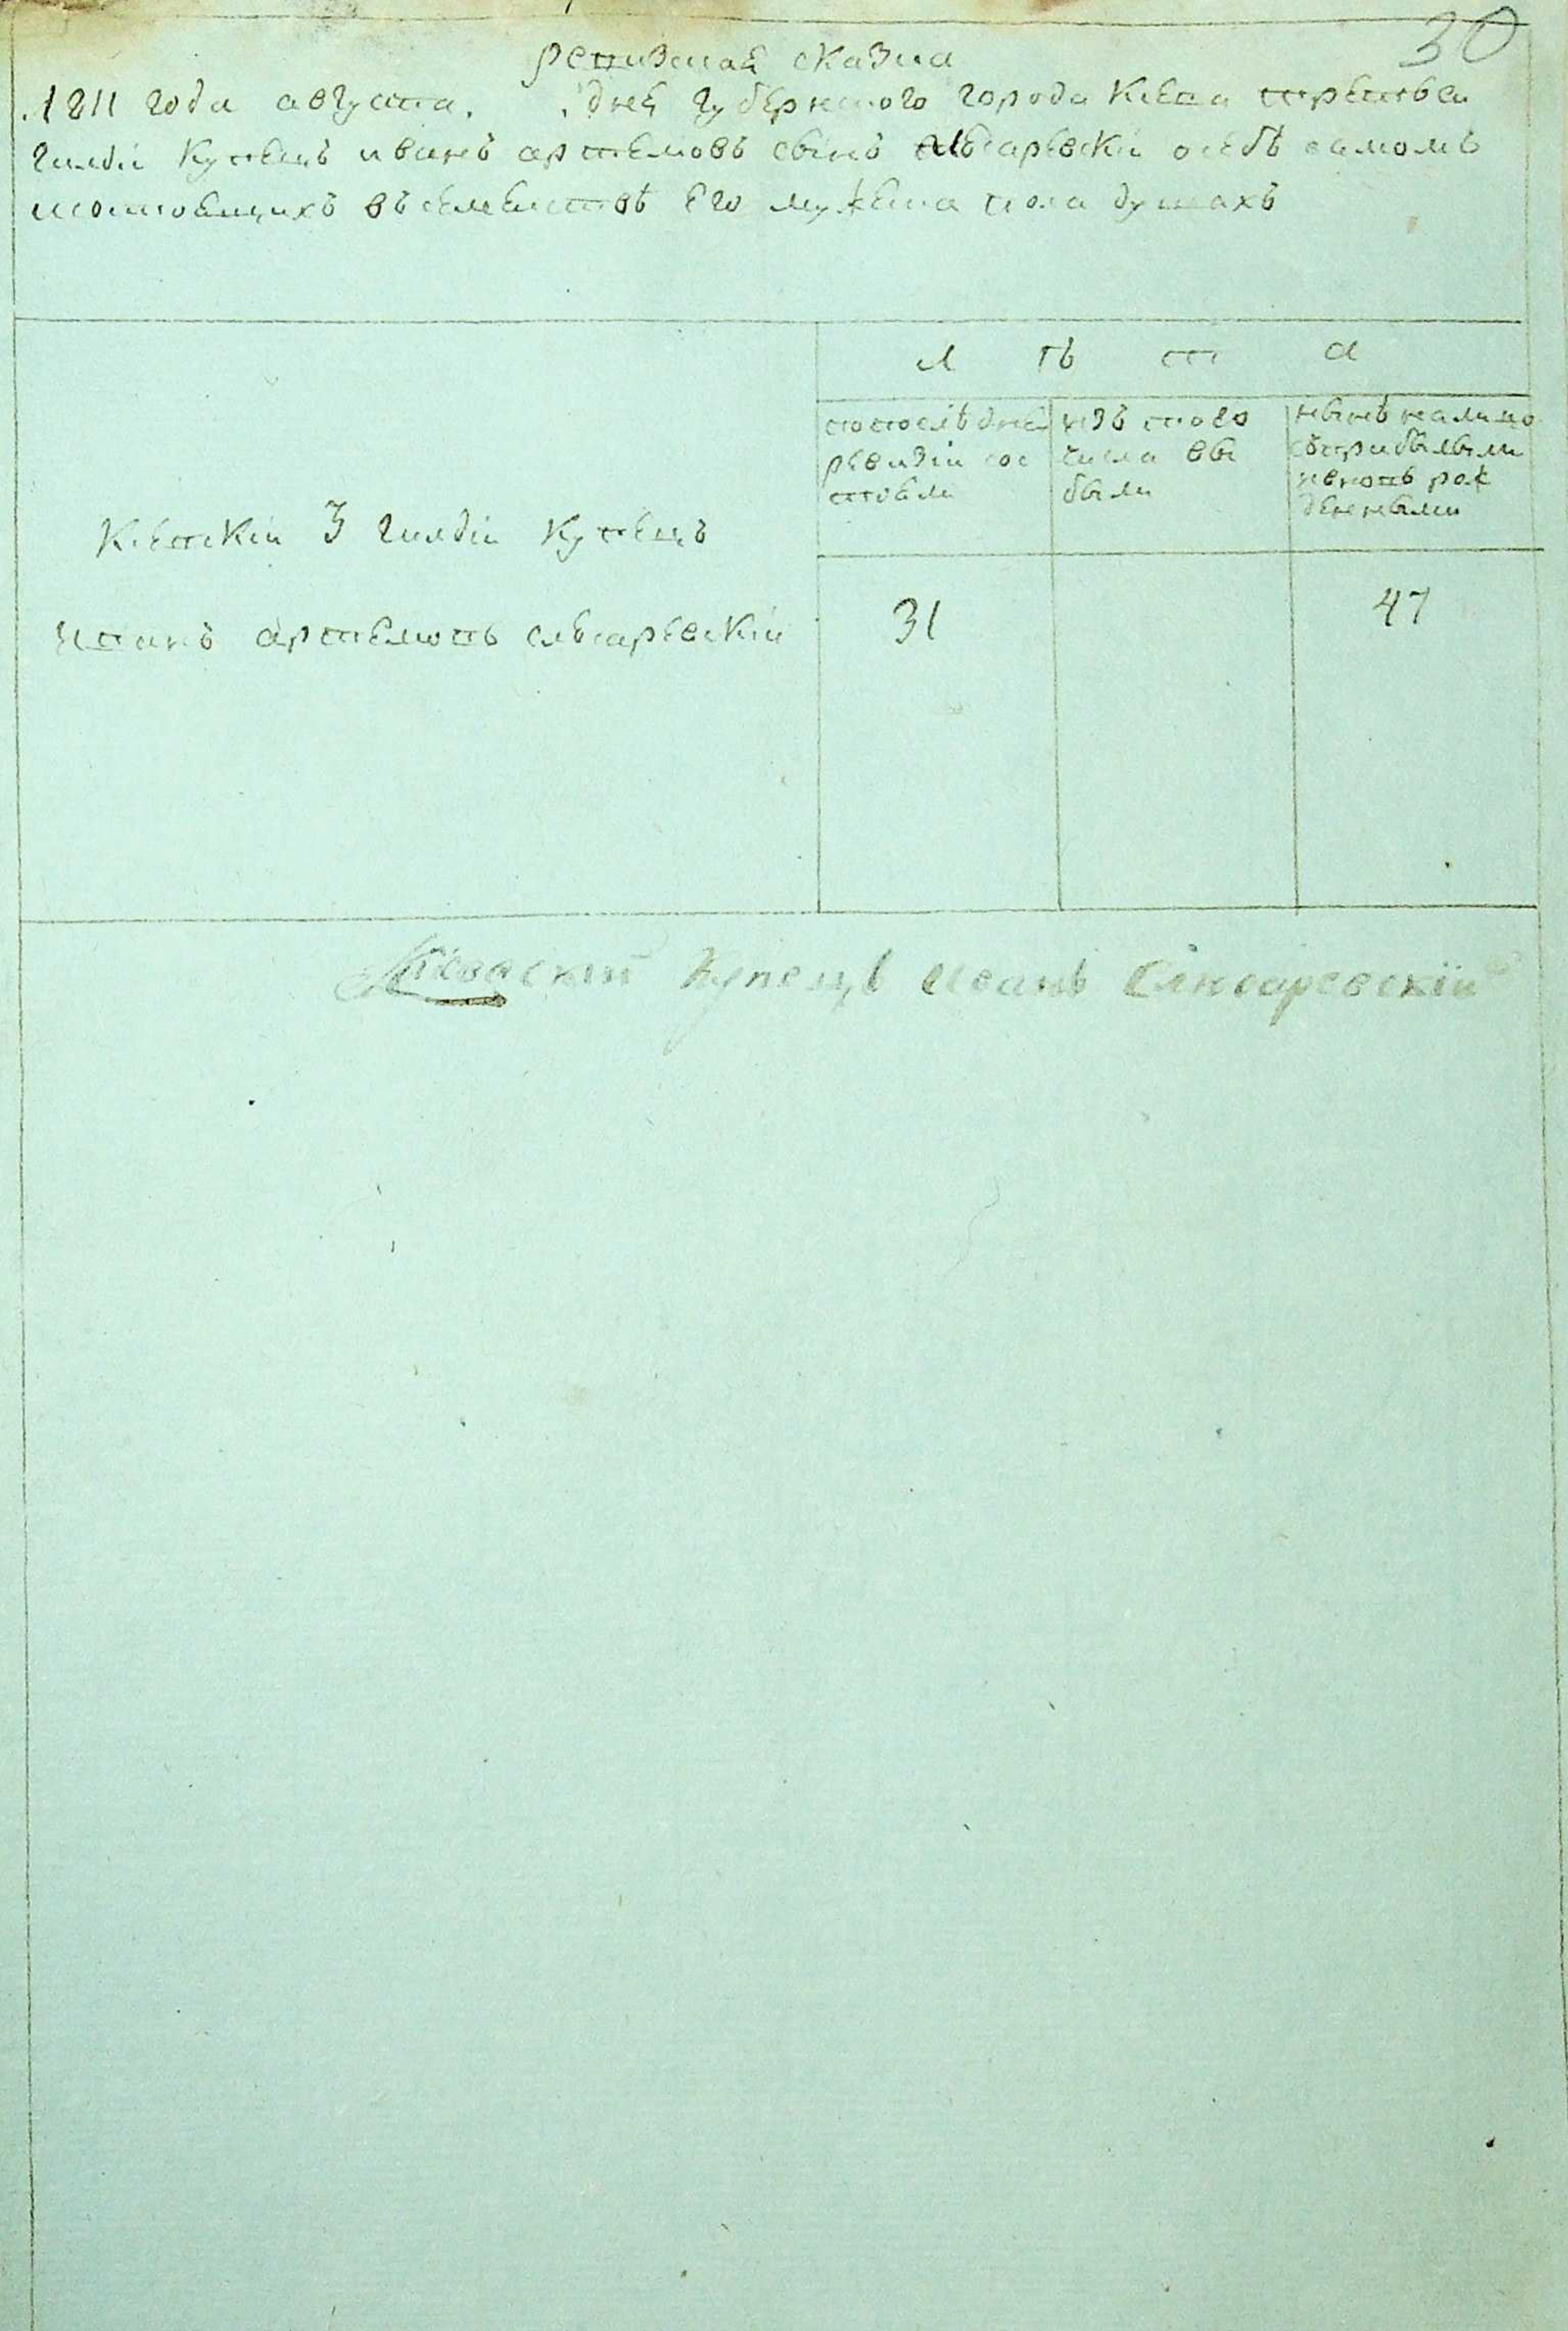 30
ревизкая сказка
1811 года августа. дней губернского города Киева третьеи
гилдіи купецъ иванъ артемовъ сынъ слѣсаревскіи осебѣ самомъ
исостоящихъ въ семеиствѣ его мужеска пола душахъ
л ѣ т а
попоследнеи ревизіи сос тояли
изъ того числа вы были
нынѣ налицо съприбылыми ивновь рож денными
Кіевскіи 3 гилдіи купецъ
иванъ артемовъ слесаревскіи 31 47
Кіевскій купецъ иванъ Слюсаревскіи